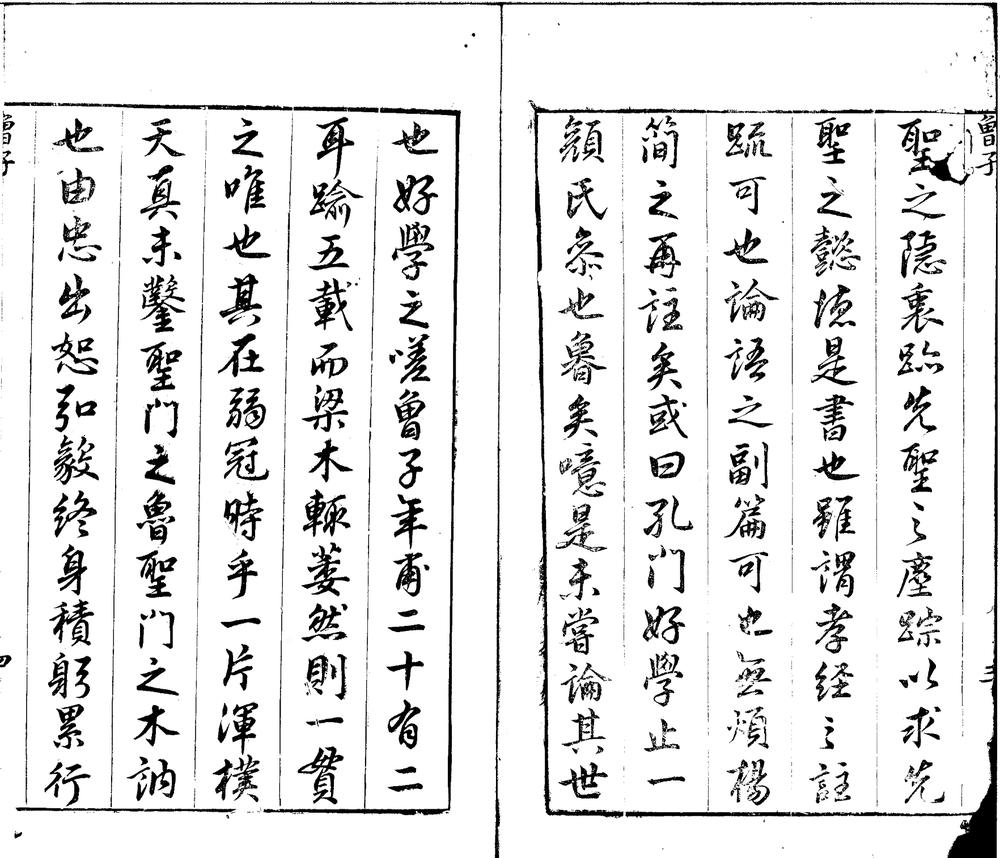 曾子
聖之隱裏跡先聖之塵踪以求先
聖之懿德是書也雖謂孝經之註
疏可也論語之副篇可也無煩楊
簡之再註矣或曰孔門好學止一
顏氏參也魯矣噫是未嘗論其世
也好學之嗟曾子年甫二十有二
耳踰五載而梁木輒萎然則一貫
之唯也其在弱冠時乎一片渾樸
天真未鑿聖門之魯聖門之木訥
也由忠出恕弘毅終身積躬累行
曾子